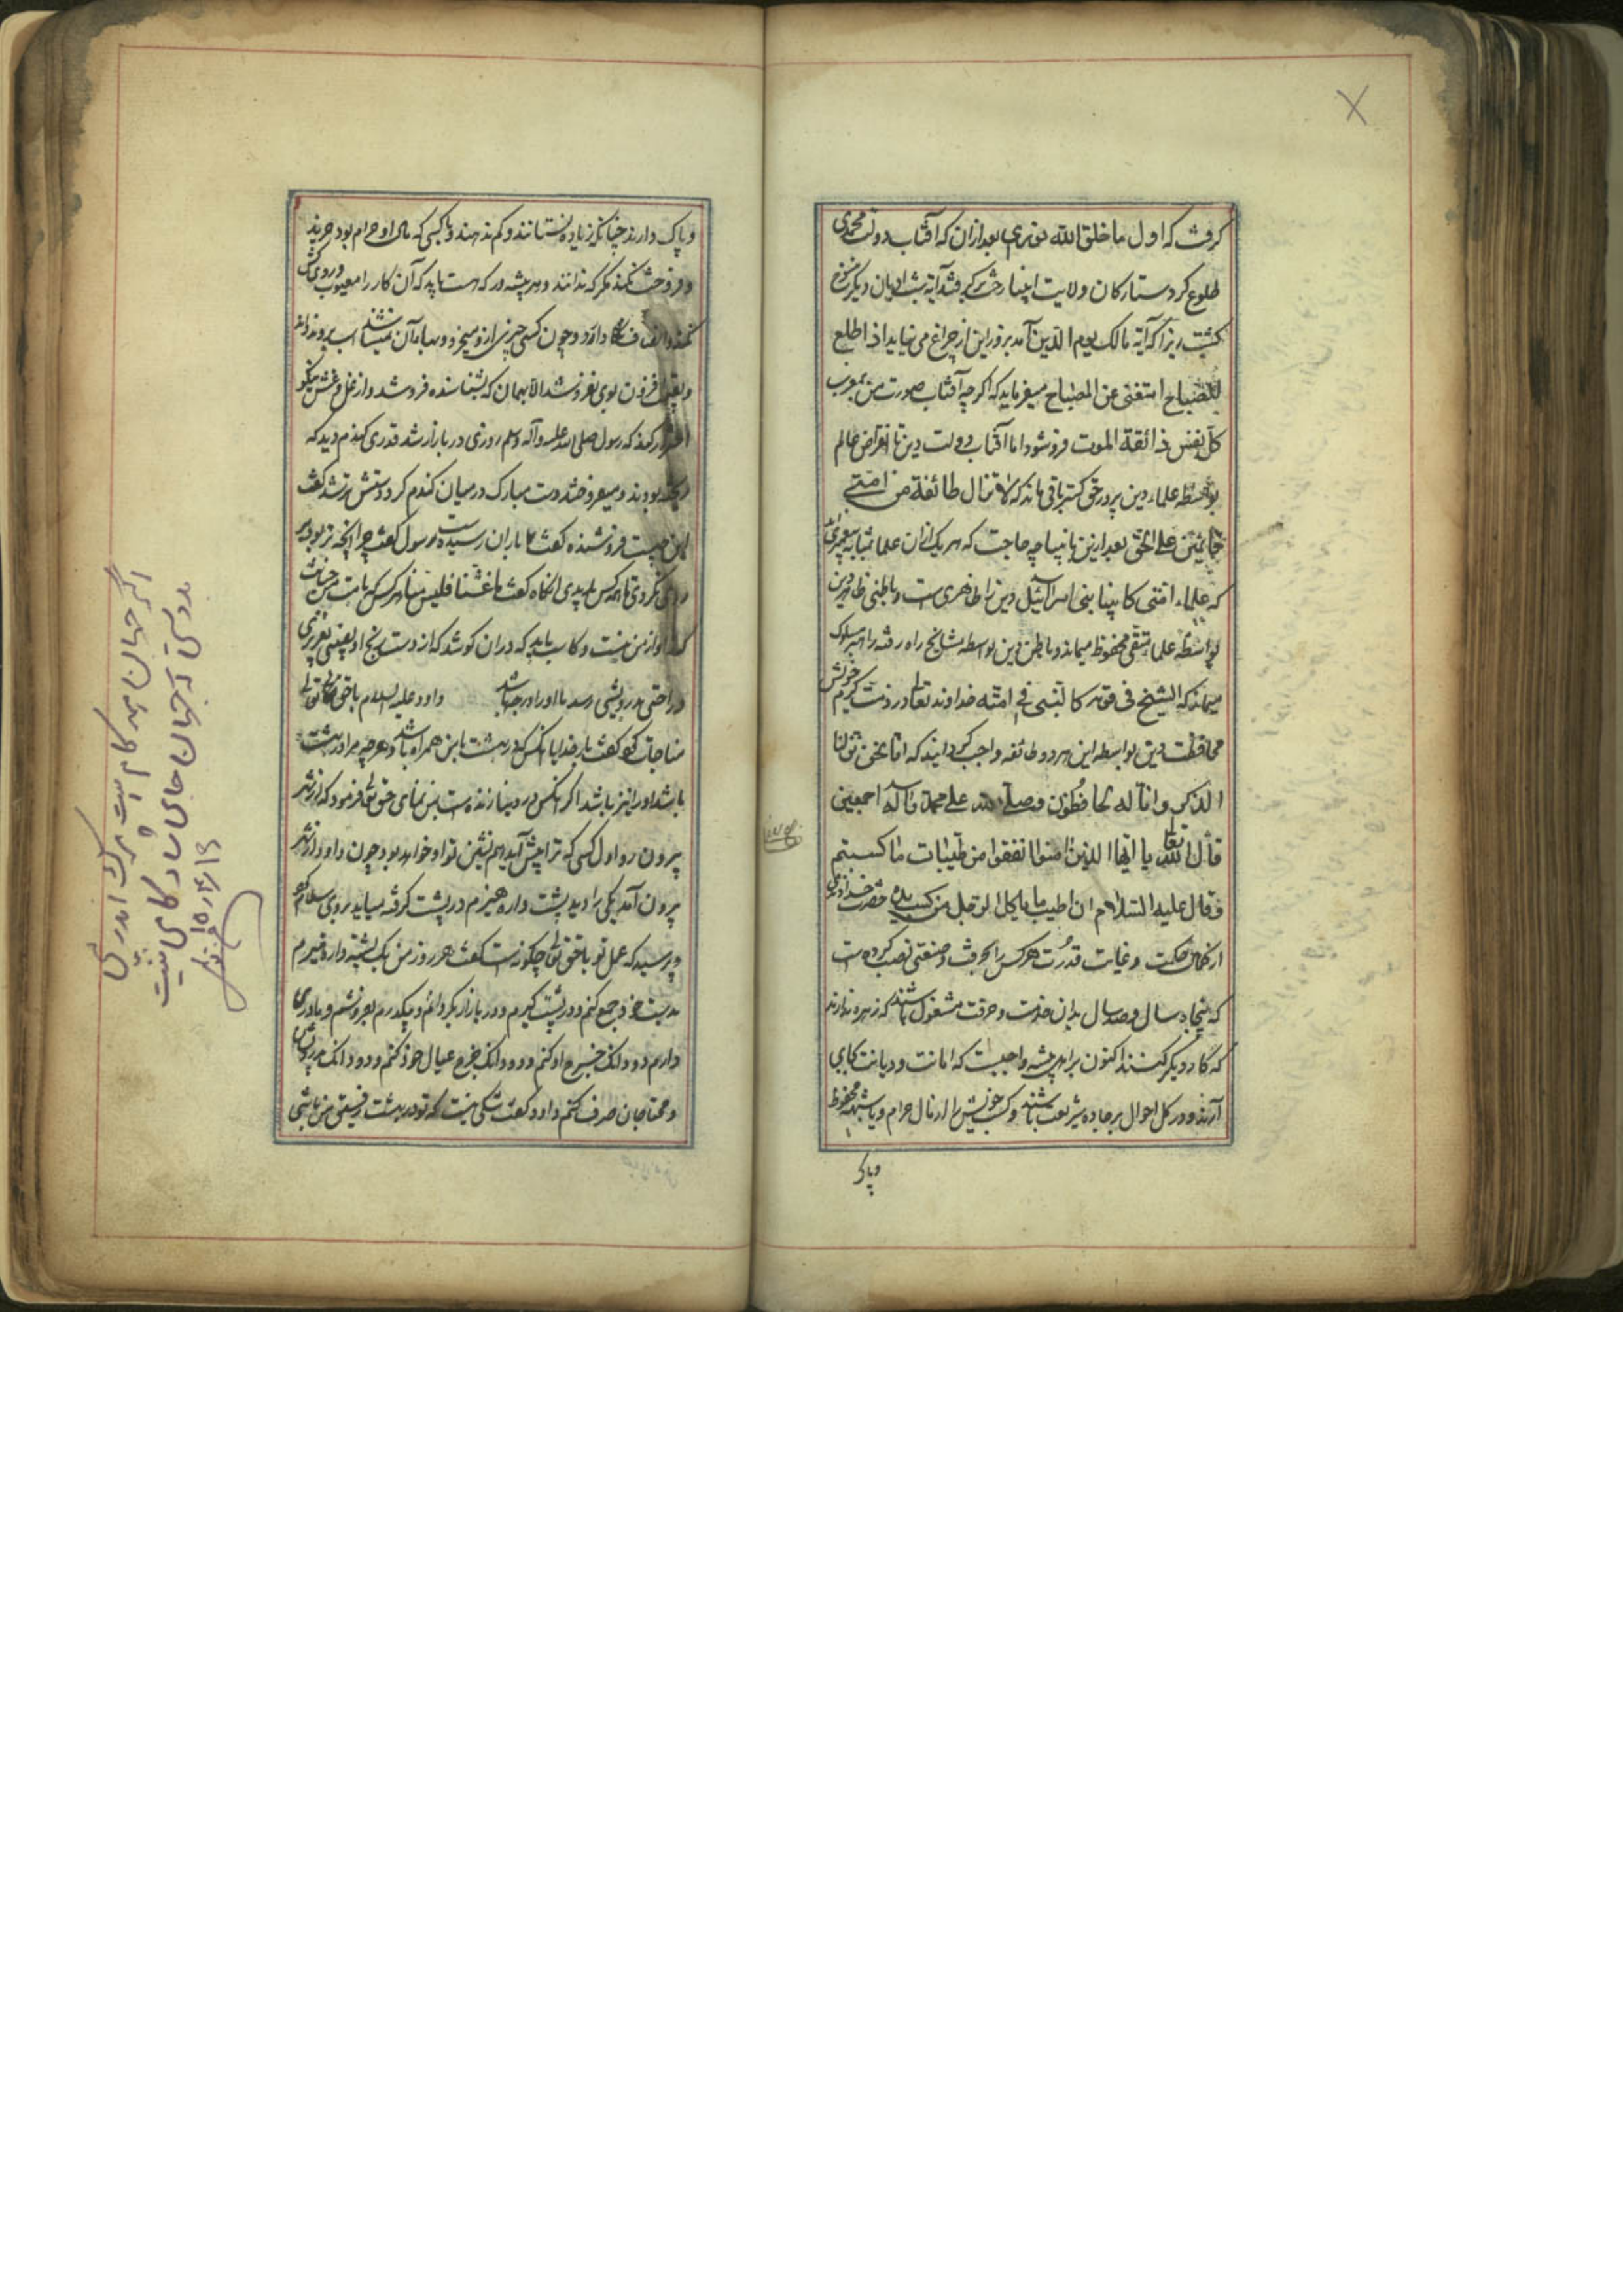 کرفت که اول ما خلق الله نوری بعد ازان که آفتاب دولت محمدی
طلوع کرد ستارکان ولایت انبیا رخت برکرفتند آیة شب ادیان دیکر منسوخ
کشت زیرا که آیة مالک یوم الدین آمد بروز این از چراغ می نیاید اذا طلع
الصباح استغنی عن المصباح میفرماید که اکرچه آفتاب صورت من بمغرب
کل نفس ذائقة الموت فروشود اما آفتاب دولت دین تا انقراض عالم
بواسطه علماء دین پرور حق کستر باقی ماند که لا تزال طائفة من امتی
قائمین علی الحق بعد ازین بانبیا چه حاجت که هر یک ازان علما بمثابه پیغمبری اند
که علماء امتی کانبیا بنی اسرائیل دین را ظاهری است و باطنی ظاهر دین
بواسطه علما متقی محفوظ میماند و باطن دین بواسطه مشایخ راه رفته راهبر مسلوک
میماند که الشیخ فی قومه کالنبی فی امته خداوند تعالی در ذمت کرم خویش
محافظت دین بواسطه این هر دو طائفه واجب کردانید که انا نحن نزلنا
الذکر وانا له لحافظون وصلی الله علی محمد وآله اجمعین
قال الله تعالی یا ایها الذین امنوا انفقوا من طیبات ما کسبتم
وقال علیه السلام ان اطیب ما یاکل الرجل من کسب یده حضرت خداوندی
از کمال حکمت و غایت قدرت هر کس را بحرفت و صنعتی نصب کرده است
که پنجاه سال و صد سال بدان خدمت و حرفت مشغول باشند که زهره ندارند
که کار دیکر کنند اکنون بر اهل پیشه واجبست که امانت و دیانت بجای
آرند و در کل احوال بر جاده شریعت باشند و کسب خویش را از مال حرام و با شبهه محفوظ
وپاک
وپاک دارند چنانکه زیاده نستانند و کم ندهند و با کسی که مال او حرام بود خرید
و فروخت نکنند مکر که ندانند و هر پیشه ور که هست باید که آن کار را معیوب و روی کش
نکند و انصاف نکاه دارد و چون کسی چیزی ازو میخرد و بهاء آن نمیشناسد
و بقیمت افزون بوی نفروشد الا بهمان که بشناسنده فروشد و از غل و غش
احتراز کند که رسول صلی الله علیه وآله وسلم روزی در بازار شد قدری کندم دید که
ریخته بودند و میفروختند دست مبارک در میان کندم کرد دستش تر شد کفت
این چیست فروشنده کفت باران رسیده است رسول کفت چرا آنچه تر بود بر
روی نکردی تا همه کس بدیدی آنکاه کفت من غشنا فلیس منا هر کس که با امت من خیانت
کند او از من نیست و کاسب باید که دران کوشد که از دست رنج او نصیبی بعزیزی
و راحتی بدرویشی رسد تا او را درجه باشد داود علیه السلام با حق تعالی
مناجات کرد کفت بار خدایا آنکس که در بهشت با من همراه باشد و هرچه مرا در بهشت
باشد او را نیز باشد اکر آنکس در دنیا زنده است بمن نمای حق تعالی فرمود که از شهر
بیرون رو اول کسی که ترا پیش آید همنشین تو او خواهد بود چون داود از شهر
بیرون آمد یکی را دید پشت واره هیزم در پشت کرفته میاید بر وی سلام کرد
و پرسید که عمل تو با حق تعالی چکونه است کفت هر روز من یک پشته واره هیزم
بدست خود جمع کنم و در پشت کیرم و در بازار بکردانم و بیکدرم بفروشم و مادری
دارم دو دانک خرج او کنم و دو دانک خرج عیال خود کنم و دو دانک بدرویشان
و محتاجان صرف کنم داود کفت شکی نیست که تو در بهشت رفیق من باشی